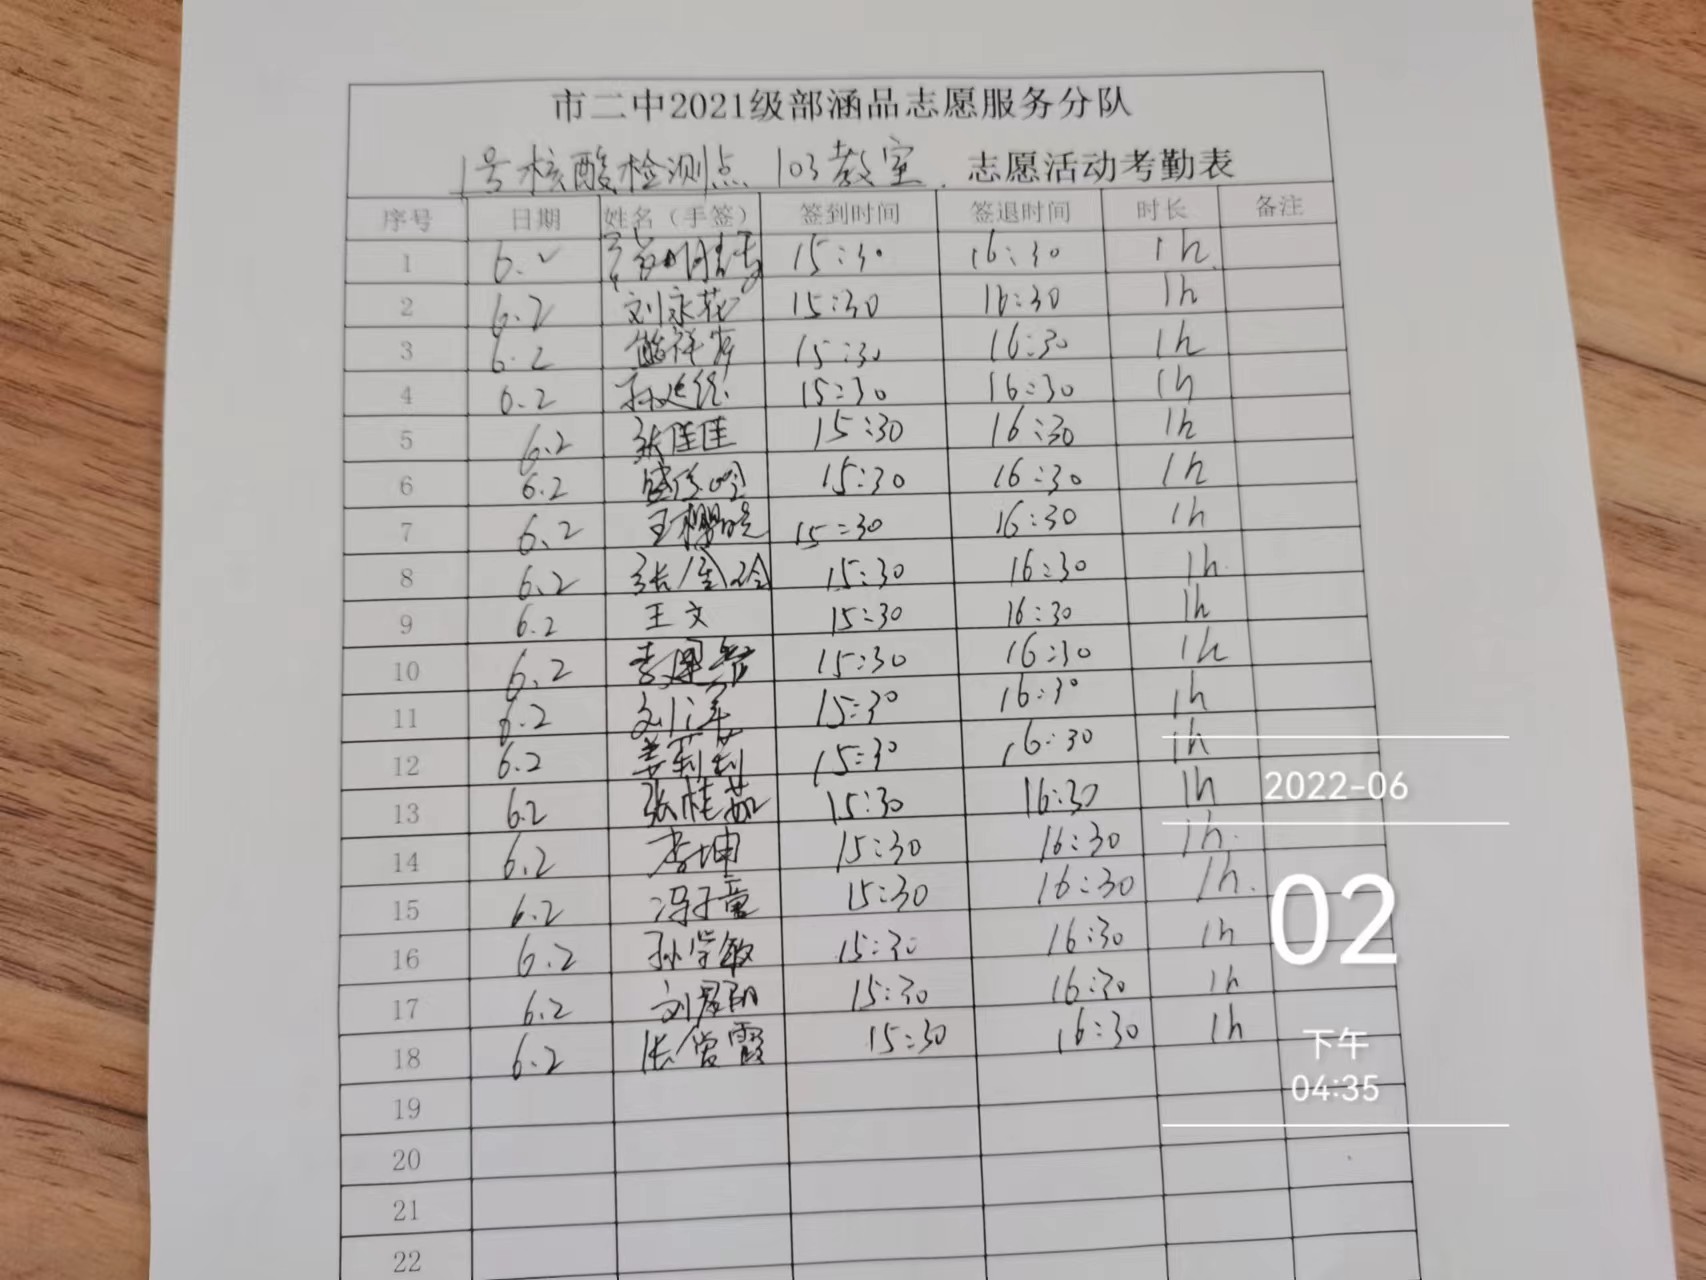 市二中2021级部涵品志愿服务分队
1号核酸检测点 103教室 志愿活动考勤表
序号 日期 姓名（手签） 签到时间 签退时间 时长 备注
1 6.2 15:30 16:30 1h
2 6.2 刘永花 15:30 16:30 1h
3 6.2 15:30 16:30 1h
4 6.2 15:30 16:30 1h
5 6.2 张佳佳 15:30 16:30 1h
6 6.2 15:30 16:30 1h
7 6.2 15:30 16:30 1h
8 6.2 15:30 16:30 1h
9 6.2 王文 15:30 16:30 1h
10 6.2 15:30 16:30 1h
11 6.2 15:30 16:30 1h
12 6.2 姜莉莉 15:30 16:30 1h
13 6.2 张桂茹 15:30 16:30 1h
14 6.2 李坤 15:30 16:30 1h
15 6.2 冯子童 15:30 16:30 1h
16 6.2 孙学敏 15:30 16:30 1h
17 6.2 15:30 16:30 1h
18 6.2 15:30 16:30 1h
19
20
21
22
2022-06
02
下午
04:35